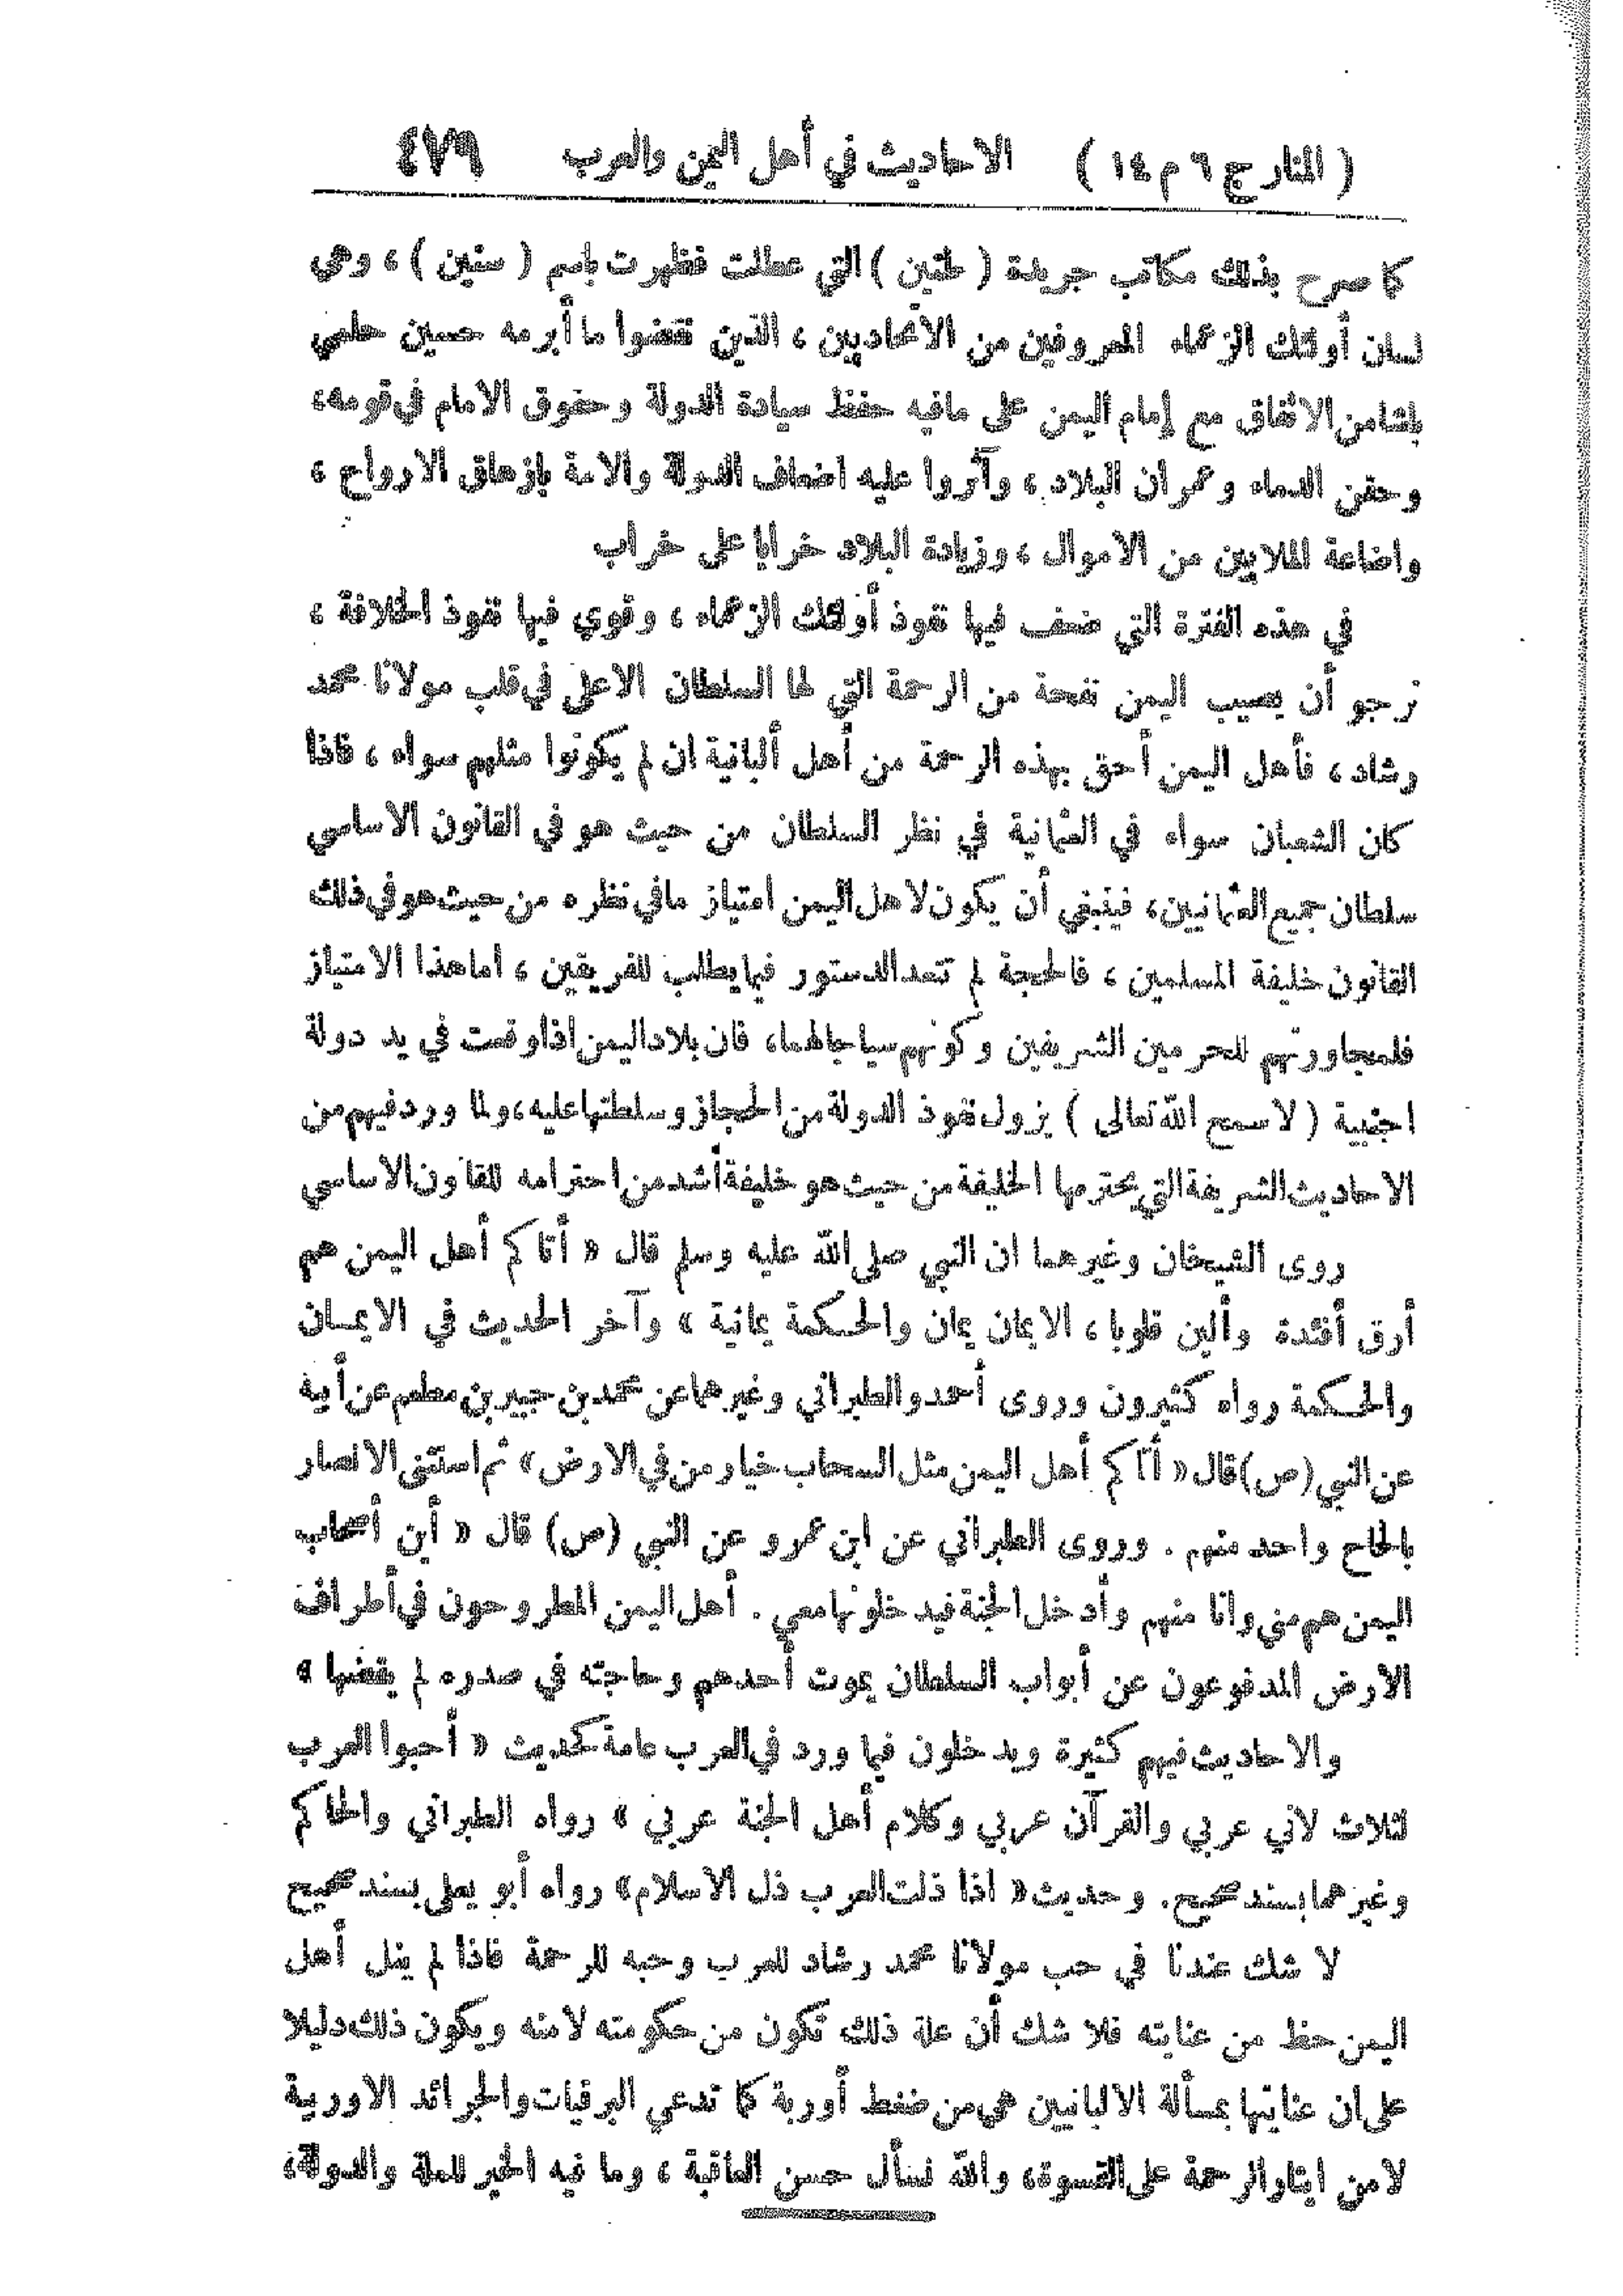 ( المنار ج ٦ م ١٤ ) الاحاديث في أهل اليمن والعرب ٤٧٩
كما صرح بذلك مكاتب جريدة ( طنين ) التي عطلت فظهرت باسم ( سنين ) ، وهي
لسان أولئك الزعماء المعروفين من الاتحاديين ، الذين نقضوا ما أبرمه حسين حلمي
باشا من الاتفاق مع إمام اليمن على مافيه حفظ سيادة الدولة وحقوق الامام في قومه،
وحقن الدماء وعمران البلاد ، وآثروا عليه اضعاف الدولة والامة بازهاق الارواح ،
واضاعة الملايين من الاموال ، وزيادة البلاد خرابا على خراب
في هذه الفترة التي ضعف فيها نفوذ أولئك الزعماء ، وقوي فيها نفوذ الخلافة ،
نرجو أن يصيب اليمن نفحة من الرحمة التي لها السلطان الاعلى في قلب مولانا محمد
رشاد ، فأهل اليمن أحق بهذه الرحمة من أهل ألبانية ان لم يكونوا مثلهم سواء ، فاذا
كان الشعبان سواء في العثمانية في نظر السلطان من حيث هو في القانون الاساسي
سلطان جميع العثمانيين، فينبغي أن يكون لاهل اليمن امتياز ما في نظره من حيث هو في ذلك
القانون خليفة المسلمين ، فالحجة لم تتعد الدستور فيما يطلب للفريقين ، اما هذا الامتياز
فلمجاورتهم للحرمين الشريفين وكونهم سياجا لهما، فان بلاد اليمن اذا وقعت في يد دولة
اجنبية ( لا سمح الله تعالى ) يزول نفوذ الدولة من الحجاز وسلطتها عليه، ولما ورد فيهم من
الاحاديث الشريفة التي يحترمها الخليفة من حيث هو خليفة أشد من احترامه للقانون الاساسي
روى الشيخان وغيرهما ان النبي صلى الله عليه وسلم قال « أتاكم أهل اليمن هم
أرق أفئدة وألين قلوبا ، الايمان يمان والحكمة يمانية » وآخر الحديث في الايمان
والحكمة رواه كثيرون وروى أحمد والطبراني وغيرهما عن محمد بن جبير بن مطعم عن أبيه
عن النبي (ص) قال « أتاكم أهل اليمن مثل السحاب خيار من في الارض » ثم استثنى الانصار
بالحاح واحد منهم . وروى الطبراني عن ابن عمرو عن النبي (ص) قال « أين أصحاب
اليمن هم مني وانا منهم وأدخل الجنة فيدخلونها معي . أهل اليمن المطروحون في أطراف
الارض المدفوعون عن أبواب السلطان يموت أحدهم وحاجته في صدره لم يقضها »
والاحاديث فيهم كثيرة ويدخلون فيما ورد في العرب عامة كحديث « أحبوا العرب
لثلاث لأني عربي والقرآن عربي وكلام أهل الجنة عربي » رواه الطبراني والحاكم
وغيرهما بسند صحيح. وحديث « اذا ذلت العرب ذل الاسلام » رواه أبو يعلى بسند صحيح
لا شك عندنا في حب مولانا محمد رشاد للعرب وحبه للرحمة فاذا لم ينل أهل
اليمن حظ من عنايته فلا شك أن علة ذلك تكون من حكومته لا منه ويكون ذلك دليلا
على ان عنايتها بمسألة الالبانيين هي من ضغط أوربة كما تدعي البرقيات والجرائد الاوربية
لا من ايثار الرحمة على القسوة، والله نسأل حسن العاقبة ، وما فيه الخير للملة والدولة،